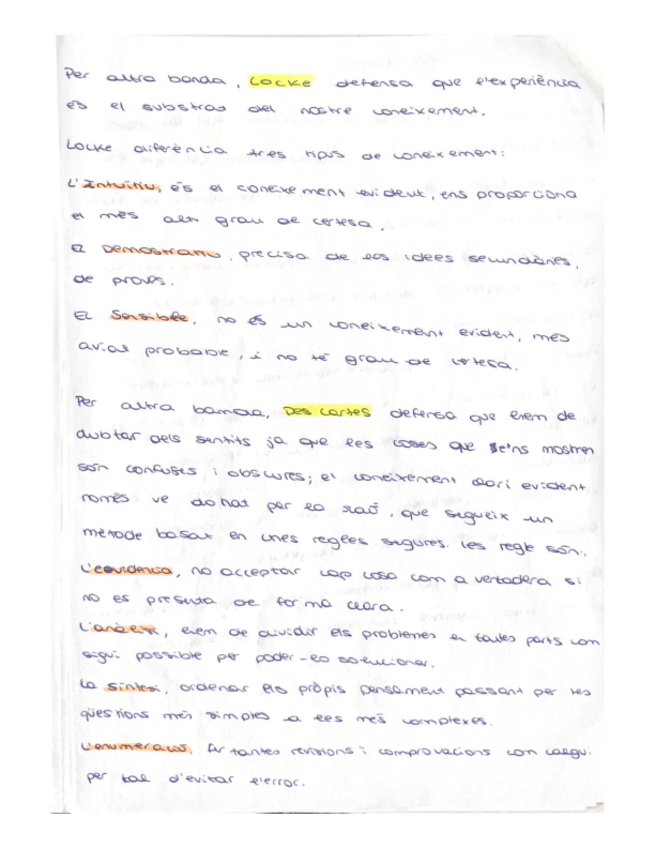 Per altra banda, Locke defensa que l'experiència
és el substras del nostre coneixement.
Locke diferència tres tipus de coneixement:
L'Intuïtiu, és el coneixement evident, ens proporciona
el més alt grau de certesa.
El Demostratiu, precisa de les idees secundàries,
de proves.
El Sensible, no és un coneixement evident, més
aviat probable, i no té grau de certesa.
Per altra banda, Descartes defensa que hem de
dubtar dels sentits ja que les coses que se'ns mostren
són confuses i obscures; el coneixement clar i evident
només ve donat per la raó, que segueix un
mètode basat en unes regles segures. Les regle són:
L'evidència, no acceptar cap cosa com a vertadera si
no es presenta de forma clara.
L'anàlisi, hem de dividir els problemes en tantes parts com
sigui possible per poder-lo solucionar.
La síntesi, ordenar els pròpis pensament passant per les
qüestions més simples a les més complexes.
L'enumeració, fer tantes revisions i comprovacions com calgui
per tal d'evitar l'error.